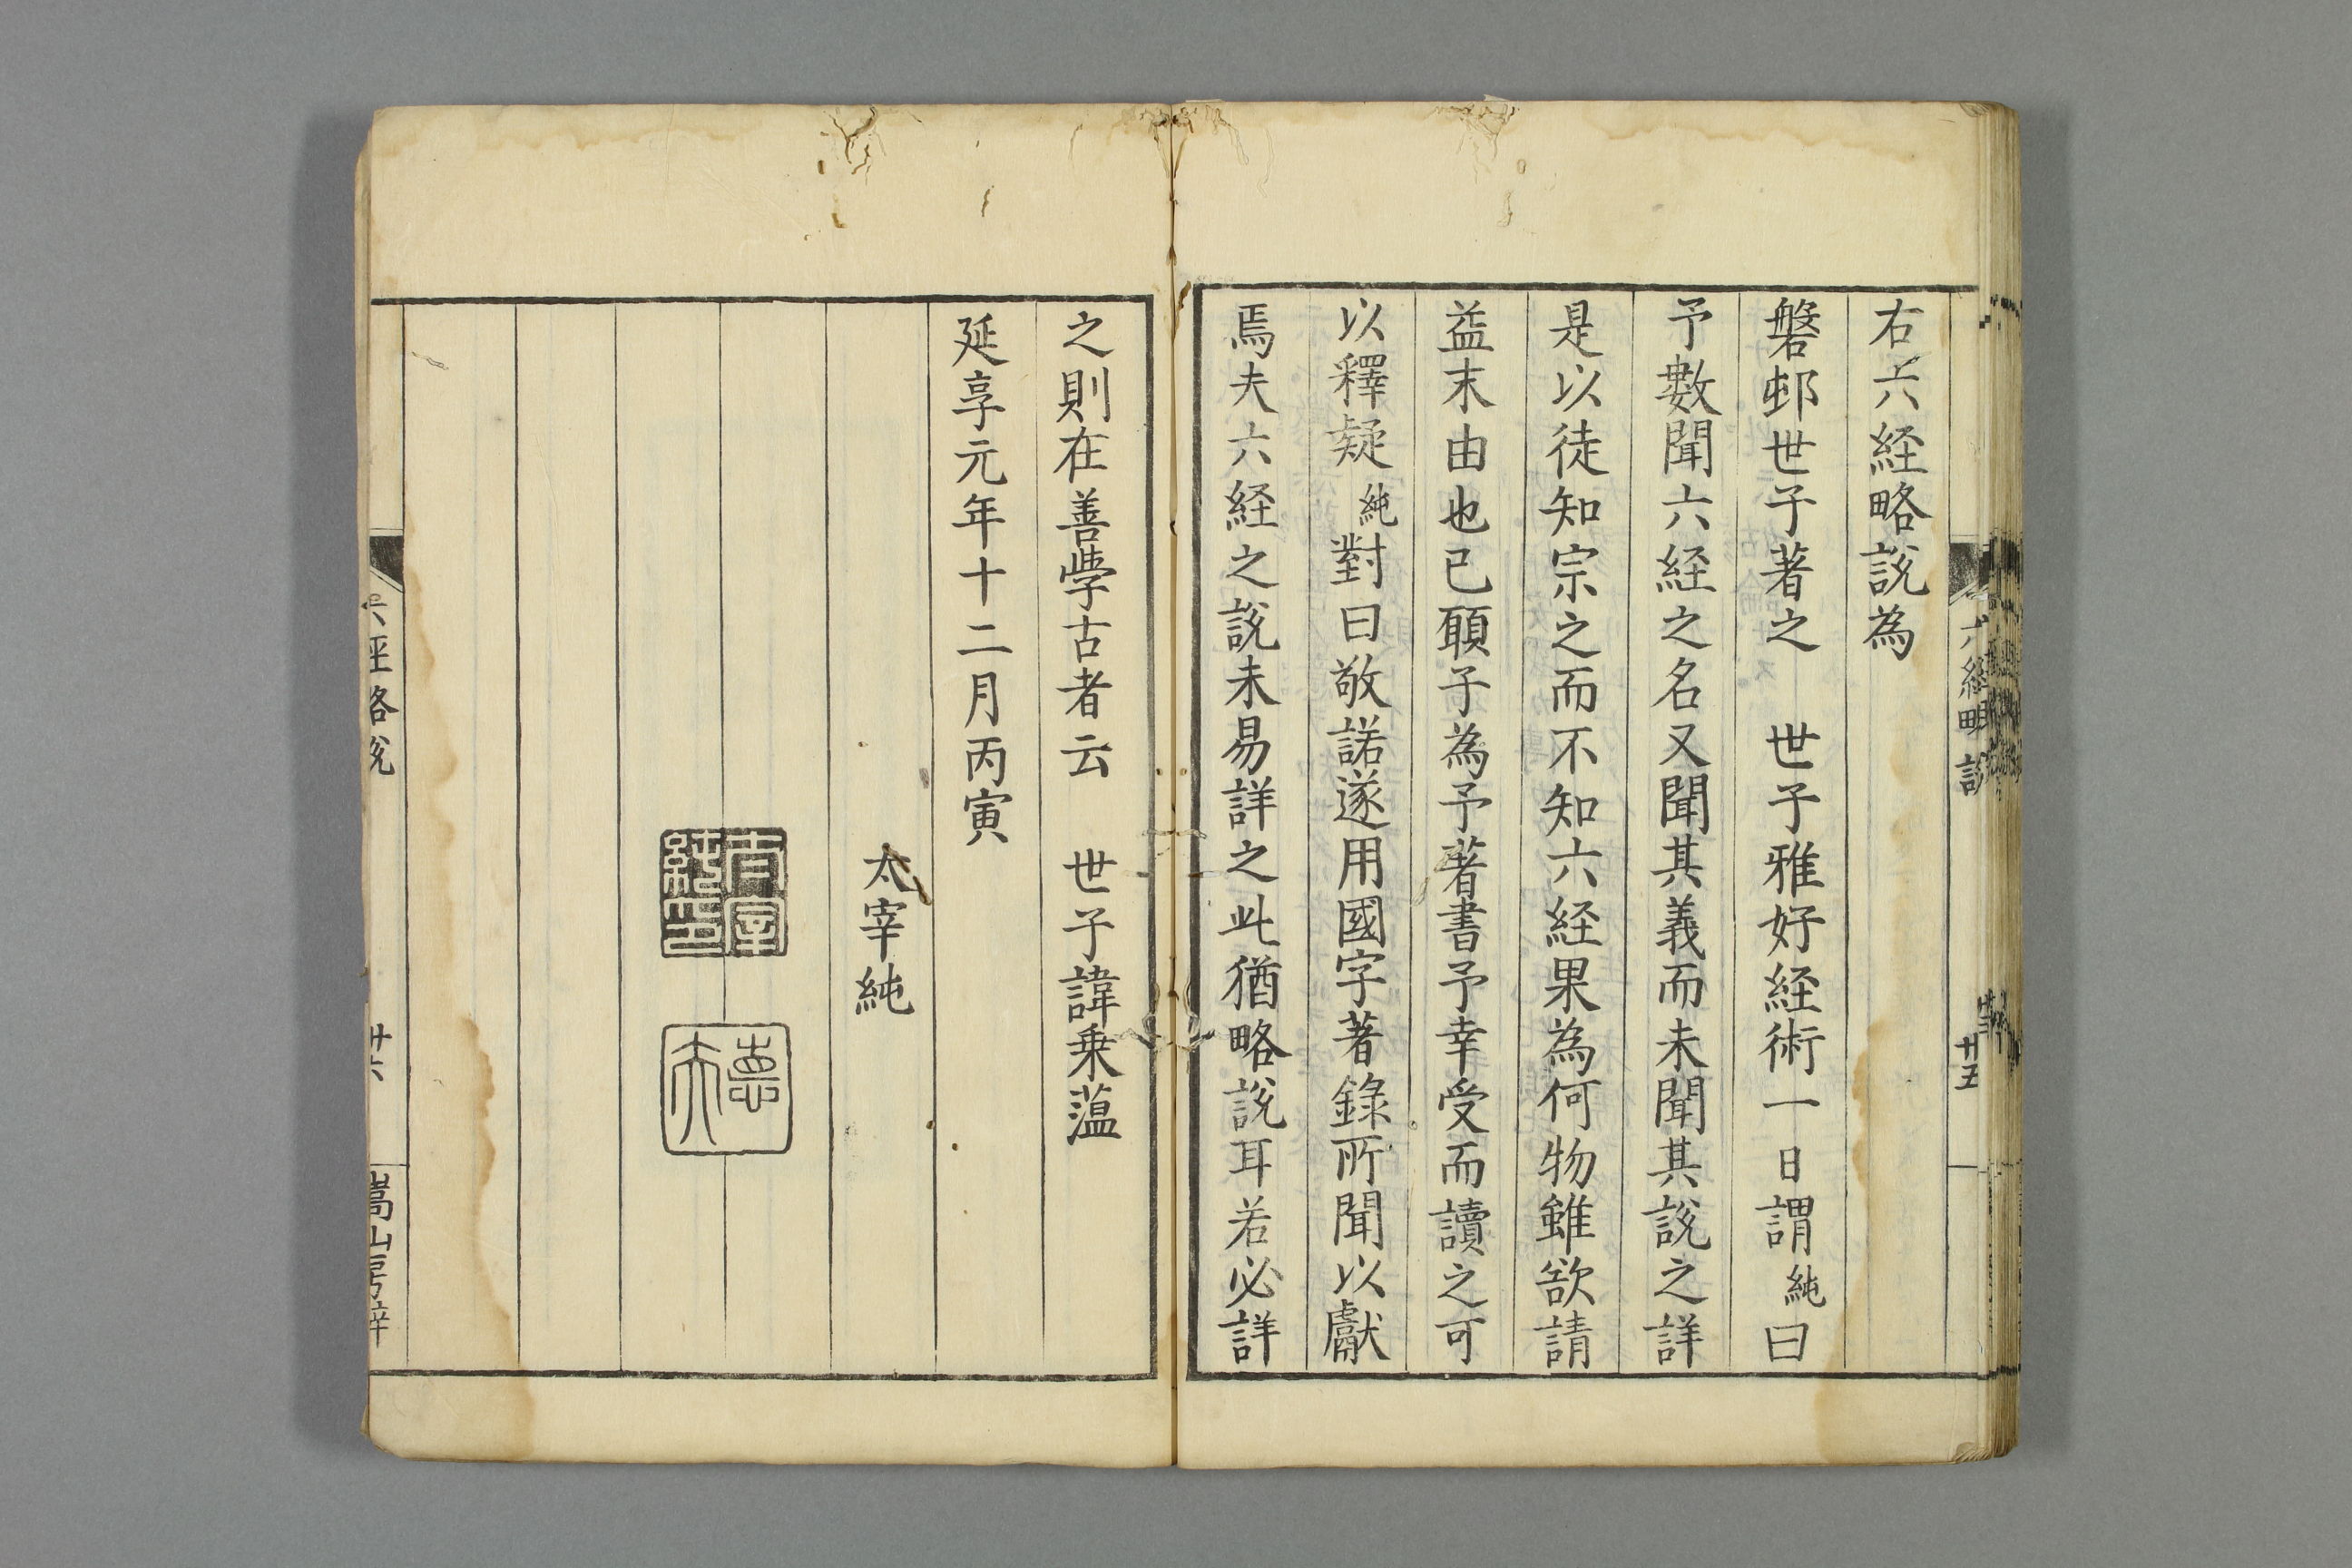 右六経略説為
磐邨世子著之　世子雅好経術一日謂純曰
予數聞六経之名又聞其義而未聞其説之詳
是以徒知宗之而不知六経果為何物雖欲請
益末由也已願子為予著書予幸受而讀之可
以釋疑純對曰敬諾遂用國字著錄所聞以獻
焉夫六経之説未易詳之此猶略説耳若必詳
之則在善學古者云　世子諱乗薀
延享元年十二月丙寅
太宰純
太宰純印
德夫
六経略説
廿五
六経略説
廿六
嵩山房梓